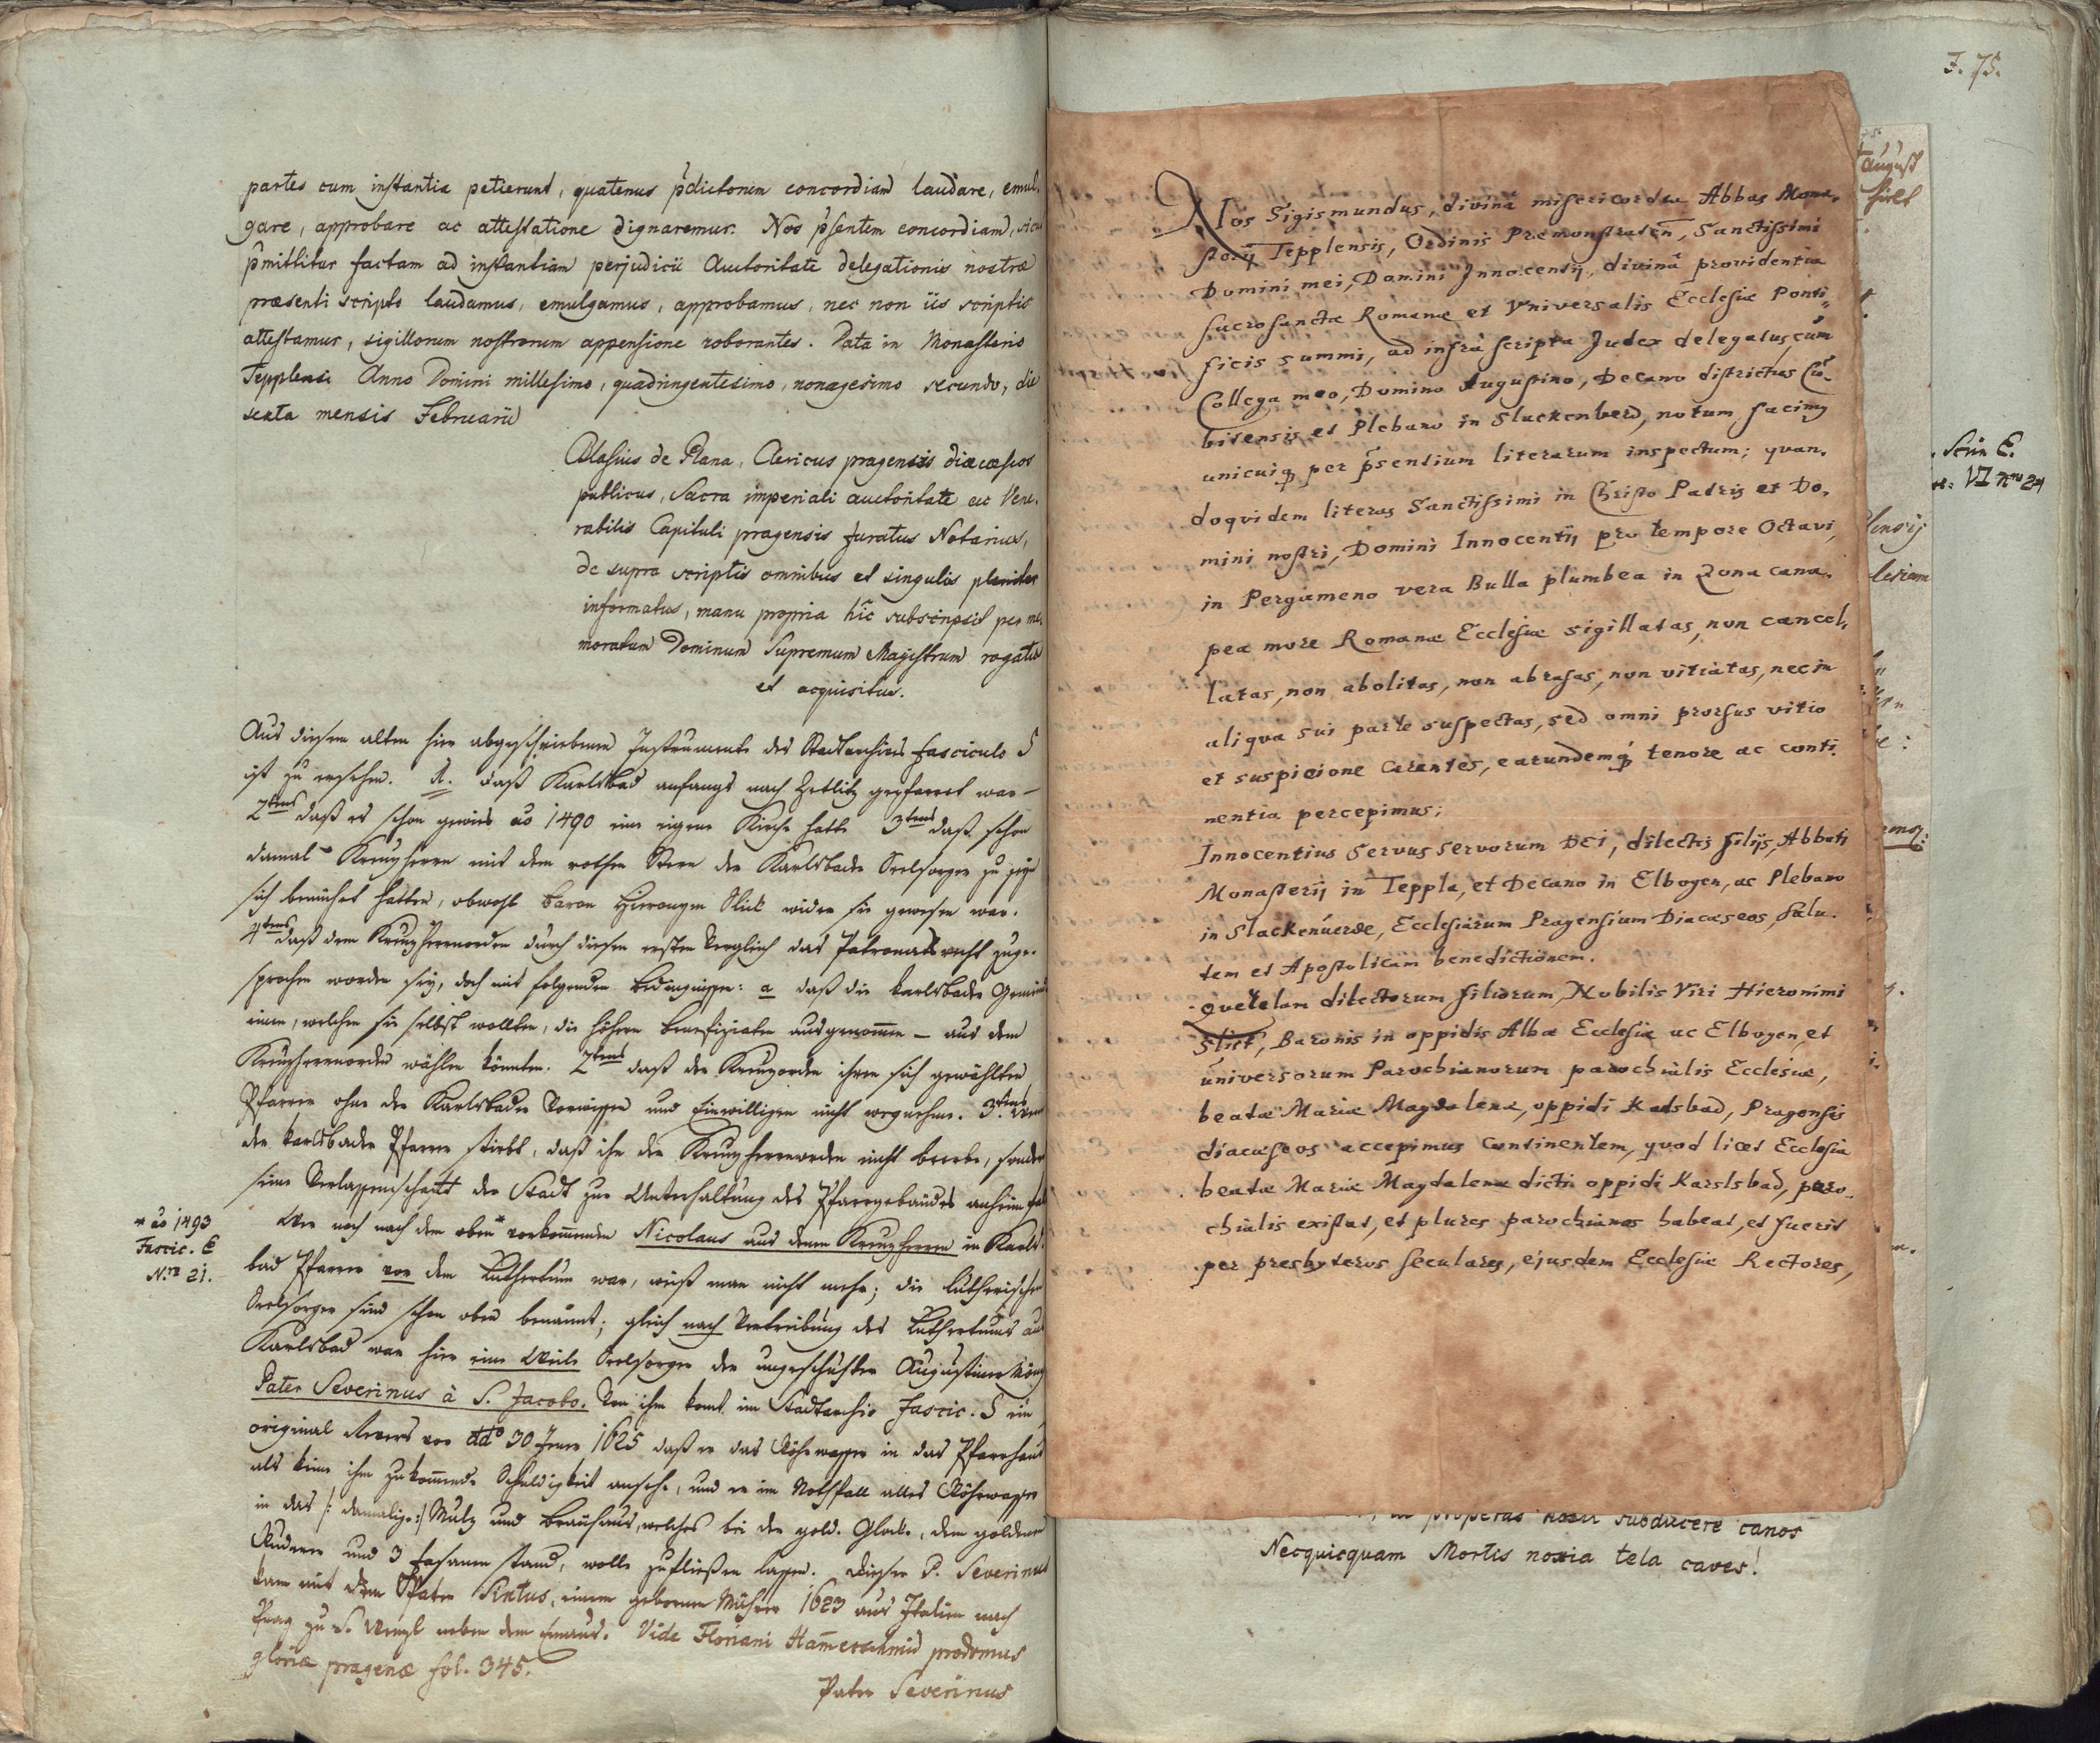 partes cum instantia petierunt, quatenus p̄dictorum concordiam laudare, emul-
gare, approbare ac attestatione dignaremur. Nos p̄sentem concordiam, sicut
p̄mittitur factam ad instantiam perjudicii Auctoritate delegationis nostræ
præsenti scripto laudamus, emulgamus, approbamus, nec non iis scriptis
attestamur, sigillorum nostrorum appensione roborantes. Data in Monasterio
Tepplensi Anno Domini millesimo, quadringentesimo, nonagesimo secundo, die
sexta mensis Februarii
Blasius de Plana, Clericus pragensis diæcæseos
publicus, Sacra imperiali auctoritate ac Vene-
rabilis Capituli pragensis juratus Notarius,
de supra scriptis omnibus et singulis pleniter
informatus, manu propria hic subscripsit per me-
moratum Dominum Supremum Magistrum rogatus
et acquisitus.
Aus diesem alten hier abgeschriebenen Instrumente des Stadtarchivs fasciculo S
ist zu ersehen. 1. daß Karlsbad anfangs nach Zettlitz gepfarret war –
2tens daß es schon gewis aõ 1490 eine eigene Kirche hatte 3tens daß schon
damal Kreuzherrn mit dem rothen Stern der Karlsbader Seelsorger zu seyn
sich bemühet hatten, obwohl Baron Hieronym Slick wider sie gewesen war.
4tens daß dem Kreuzherrnorden durch diesen ersten Verglich das Patronatsrecht zuge-
sprochen worden sey, doch mit folgenden Bedingnissen: a daß die Karlsbader Gemeinde
einen, welchen sie selbst wollten, die höhern Benefiziaten ausgenommen – aus dem
Kreuzherrnorden wählen könnten. 2tens daß der Kreuzorden ihren sich gewählten
Pfarrer ohne der Karlsbader Vorwissen und Einwilligen nicht wegnehme. 3tens Wenn
der Karlsbader Pfarrer stirbt, daß ihn der Kreuzherrnorden nicht beerbe, sondern
seine Verlassenschaft der Stadt zur Unterhaltung des Pfarrgebäudes anheim falle
* aõ 1493
Fascic. E
Nro 21.
Wer noch nach dem oben* vorkommenden Nicolaus aus denen Kreuzherrn in Karls-
bad Pfarrer vor dem Lutherthum war, weiß man nicht mehr; die lutherischen
Seelsorger sind schon oben benannt; gleich nach Vertreibung des Lutherthums aus
Karlsbad war hier eine Weile Seelsorger der ungeschuhte Augustiner Mönch
Pater Severinus à S. Jacobo. Von ihm komt im Stadtarchiv Fascic. S ein
original Revers vor ddo 30 Jener 1625 daß er das Röhrwasser in das Pfarrhaus
als keine ihm zukommende Schuldigkeit ansehe, und er im Nothfall alles Röhrwasser
in das /: damalige :/ Mulz und Breuhaus, welches bei der gold. Glocke, dem goldenen
Ruder und 3 Fasanen stand, wolle zufließen lassen. Dieser P. Severinus
kam mit dem Pater Sixtus, einem gebornen Mährer 1623 aus Italien nach
Prag zu S. Wenzl neben dem Emaus. Vide Floriani Ham̄erschmid prodromus
gloriæ pragenæ fol. 345.
Pater Severinus
F. 75.
Nos Sigismundus, divinâ misericordiâ Abbas Mona-
sterij Tepplensis, Ordinis Præmonstraten̄, Sanctissimi
Domini mei, Domini Innocentij, divinâ providentia
sacrosanctæ Romanæ et Vniversalis Ecclesiæ Ponti-
ficis summi, ad infra scripta Judex delegatus, cum
Collega meo, Domino Augustino, Decano districtus Cu-
bitensis et Plebano in Slackenberd, notum facimus
unicuiq̃ per p̃sentium literarum inspectum; quan-
doqvidem literas Sanctissimi in Christo Patris et Do-
mini nostri, Domini Innocentij pro tempore Octavi,
in Pergameno vera Bulla plumbea in Zona cana-
pea more Romanæ Ecclesiæ sigillatas, non cancel-
latas, non abolitas, non abrasas, non vitiatas, nec in
aliqva sui parte suspectas, sed omni prorsus vitio
et suspicione carentes, earundemq̃ tenore ac conti-
nentia percepimus;
Innocentius Servus servorum DEI, dilectis filijs, Abbati
Monasterij in Teppla, et Decano in Elbogen, ac Plebano
in Slackenuerde, Ecclesiarum Pragensium Diæcæseos, salu-
tem et Apostolicam benedictionem.
Qverelam dilectorum filiorum, Nobilis Viri Hieronimi
Slick, Baronis in oppidis Albæ Ecclesiæ ac Elbogen, et
universorum Parochianorum parochialis Ecclesiæ,
beatæ Mariæ Magdalenæ, oppidi Karlsbad, Pragensis
diæcæseos accepimus continentem, quod licet Ecclesia
beatæ Mariæ Magdalenæ dicti oppidi Karslsbad, paro-
chialis existat, et plures parochianos habeat, et fuerit
per presbyteros seculares, ejusdem Ecclesiæ Rectores,
august
Scrin E.
VI nro 24
properas
subducere canos
Necquicquam Mortis noxia tela caves!